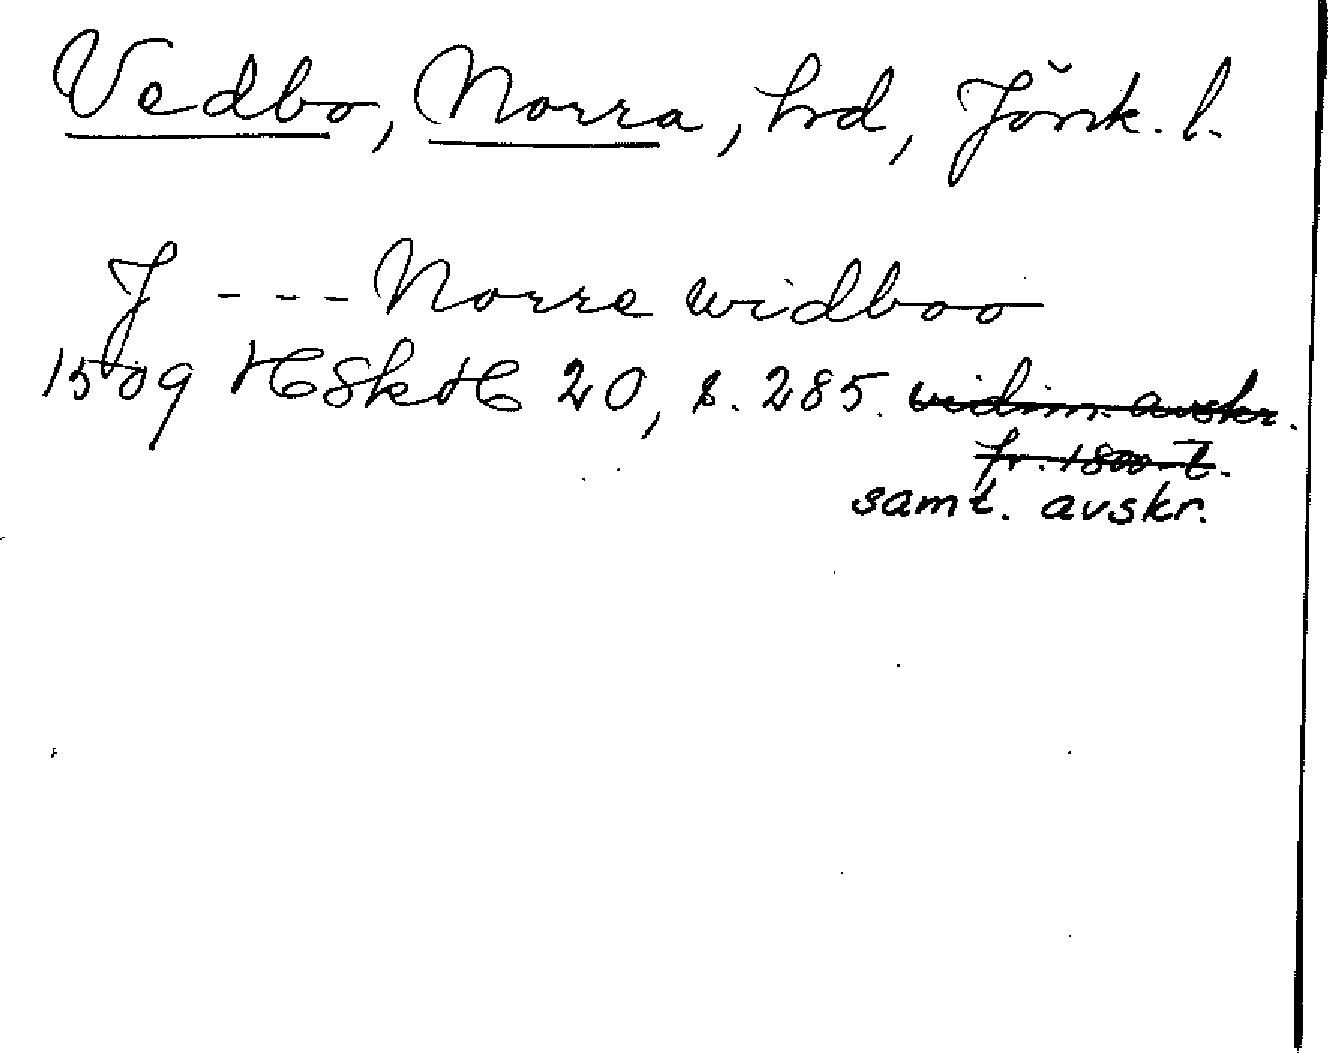 Vedbo, Norra, hrd, Jönk. l.
J --- Norre widboo
1509 HSkH 20, s. 285. vidim. avskr.
fr. 1800-t.
samt. avskr.